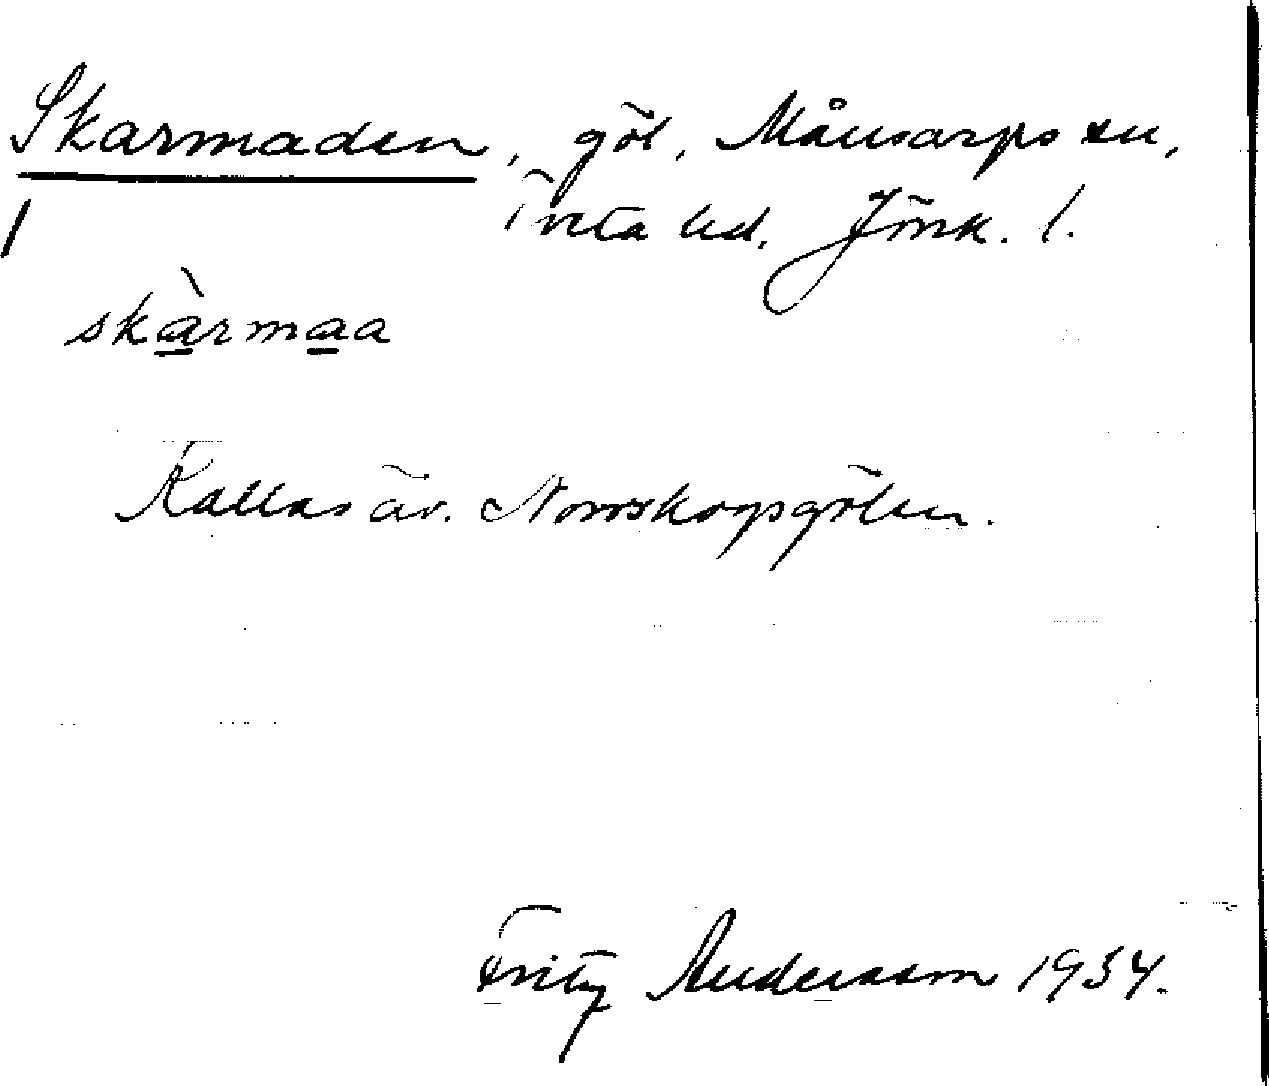 Skarmaden, göl, Månsarps sn,
Tveta hd, Jönk. l.
skàrmaa
Kallas äv. Norrskogsgölen.
Fritz Andersson 1934.